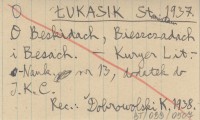 O ŁUKASIK St. 1937.
O Beskidach, Bieszczadach
i Besach. — Kuryer Lit.-
-Nauk. nr 13, dodatek do
I.K.C.
Rec.: Dobrowolski K. 1938.